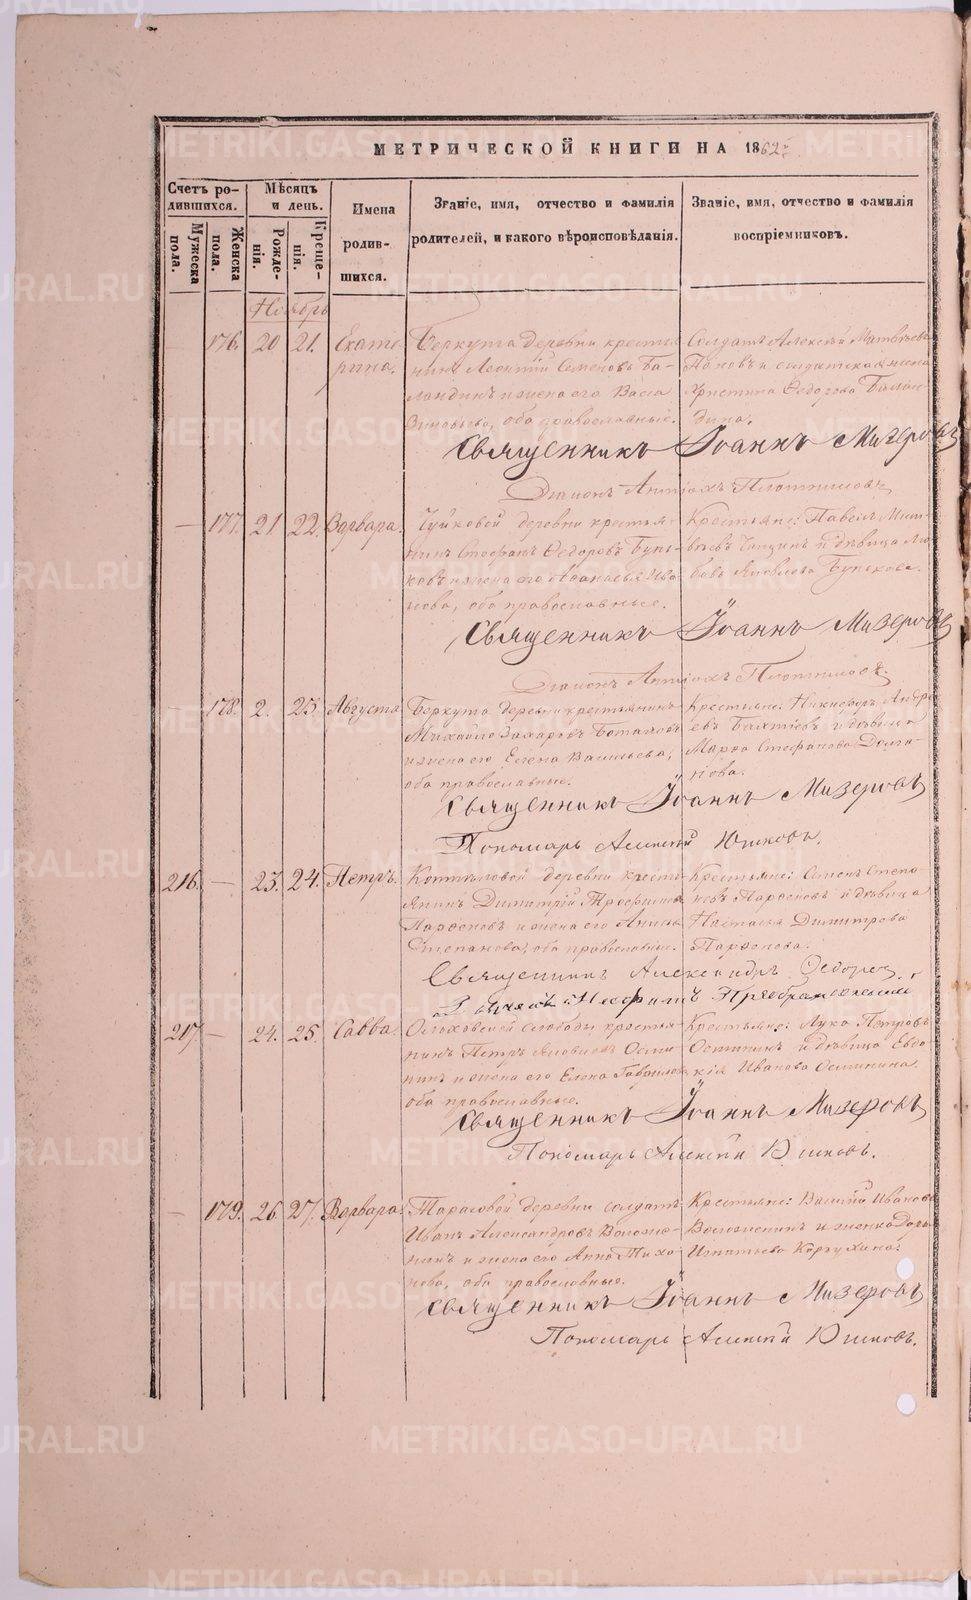 МЕТРИЧЕСКОЙ КНИГИ НА 1862
Счетъ ро-
дившихся.
Мужеска
пола.
Женска
пола.
Мѣсяцъ
и день.
Рожде-
нія.
Креще-
нія.
Имена
родив-
шихся.
Званіе, имя, отчество и фамилія
родителей, и какого вѣроисповѣданія.
Званіе, имя, отчество и фамилія
воспріемниковъ.
Ноябрь
176. 20 21. Екате
рина.
Беркута деревни крестья
нинъ Леонтій Семеновъ Ба-
ландинъ и жена его Васса
оба православные.
Солдатъ Алексей Матвѣевъ
Поповъ и солдатская жена
Христина Федорова Балан
дина.
Священникъ Іоаннъ Мизеровъ
Діаконъ Антіохъ Плотниковъ
177. 21 22. Варвара.
Чуйковой деревни крестья-
нинъ Стефанъ Федоровъ Бунь-
ковъ и жена его Афанасья Ива
нова, оба православные.
Крестьяне: Павелъ Мат-
вѣевъ и дѣвица Лю
бовь Яковлева Бунькова.
Священникъ Іоаннъ Мизеровъ
Діаконъ Антіохъ Плотниковъ.
178. 2. 23. Августа
Беркута деревни крестьянинъ
Михайло Захаровъ
и жена его Елена Васильева,
оба православные.
Крестьяне: Никифоръ Андре
евъ и дѣвица
Марфа Стефанова Долга
нова.
Священникъ Іоаннъ Мизеровъ
Пономарь Алексей Юшковъ.
216. — 23. 24. Петръ.
деревни кресть
янинъ Димитрій Трофимовъ
Парфеновъ и жена его
Степанова, оба православные.
Крестьяне: Степа
новъ Парфеновъ и дѣвица
Настасья Димитрова
Парфенова.
Священникъ Александръ Федоров
Преображенскій
217. — 24. 25. Савва.
слободы крестья-
нинъ Петръ Яковлевъ Оси
нинъ и жена его Елена Гаврилова
оба православные.
Крестьяне: Лука Петровъ
и дѣвица Евдо
кія Иванова Осинина.
Священникъ Іоаннъ Мизеровъ
Пономарь Алексей Юшковъ.
— 179. 26. 27. Варвара.
Тарасовой деревни солдатъ
Иванъ Александровъ Воложе-
нинъ и жена его Анна Тихо
нова, оба православные.
Крестьяне: Василій Ивановъ
Воложенинъ и женка Дарья
Игнатьева Каргухина.
Священникъ Іоаннъ Мизеровъ
Пономарь Алексей Юшковъ.
METRIKI.GASO-URAL.RU